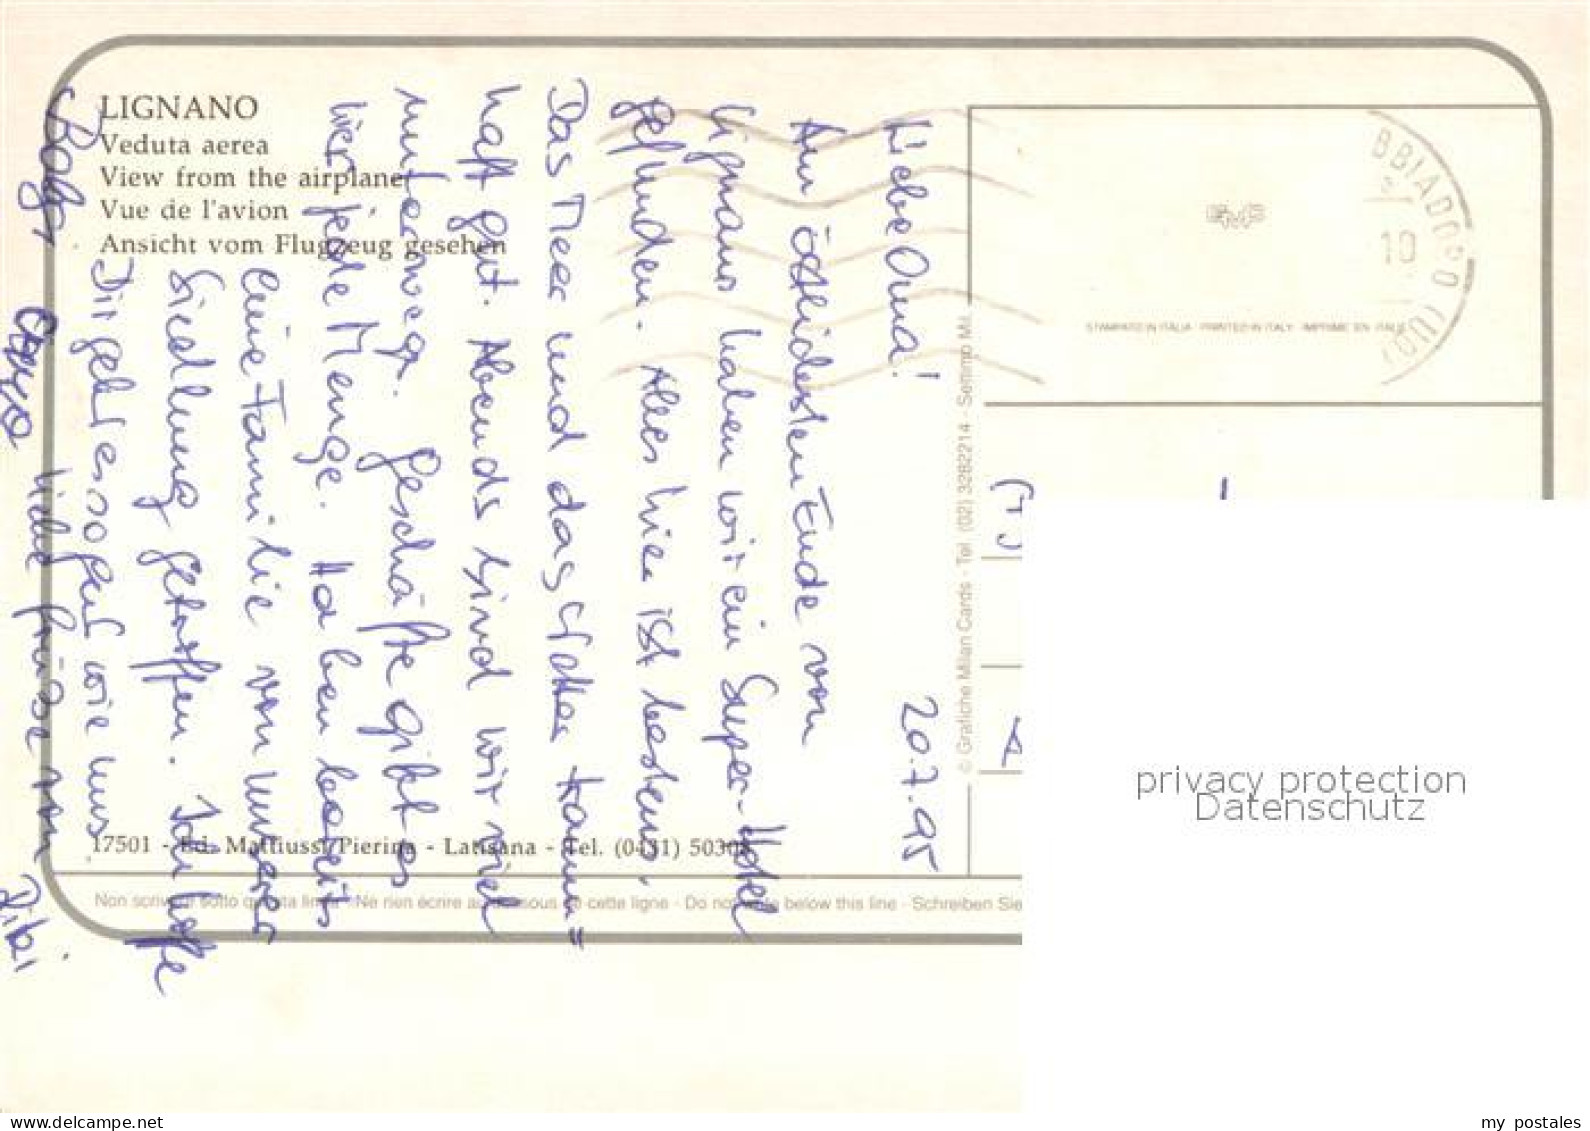 LIGNANO
Veduta aerea
View from the airplane
Vue de l'avion
Ansicht vom Flugzeug gesehen
BBIADORO (UD)
10
STAMPATO IN ITALIA · PRINTED IN ITALY · IMPRIME EN ITALIE
20.7.95
Liebe Oma!
Am östlichsten Ende von
Lignano haben wir ein Super-Hotel
gefunden. Alles hier ist bestens.
Das Meer und das Wetter traum=
haft gut. Abends sind wir viel
unterwegs. Geschäfte gibt es
hier jede Menge. Haben bereits
eine Familie von unserer
Siedlung getroffen. Ich hoffe
Dir geht es so gut wie uns
Viele Grüße von
© Grafiche Milan Cards - Tel. (02) 3282214 - Sernmo MI.
17501 - Ed. Mattiussi Pierina - Latisana - Tel. (0431) 50308
Non scrivere sotto questa linea - Ne rien écrire au dessous de cette ligne - Do not write below this line - Schreiben Sie
privacy protection
Datenschutz
my postales